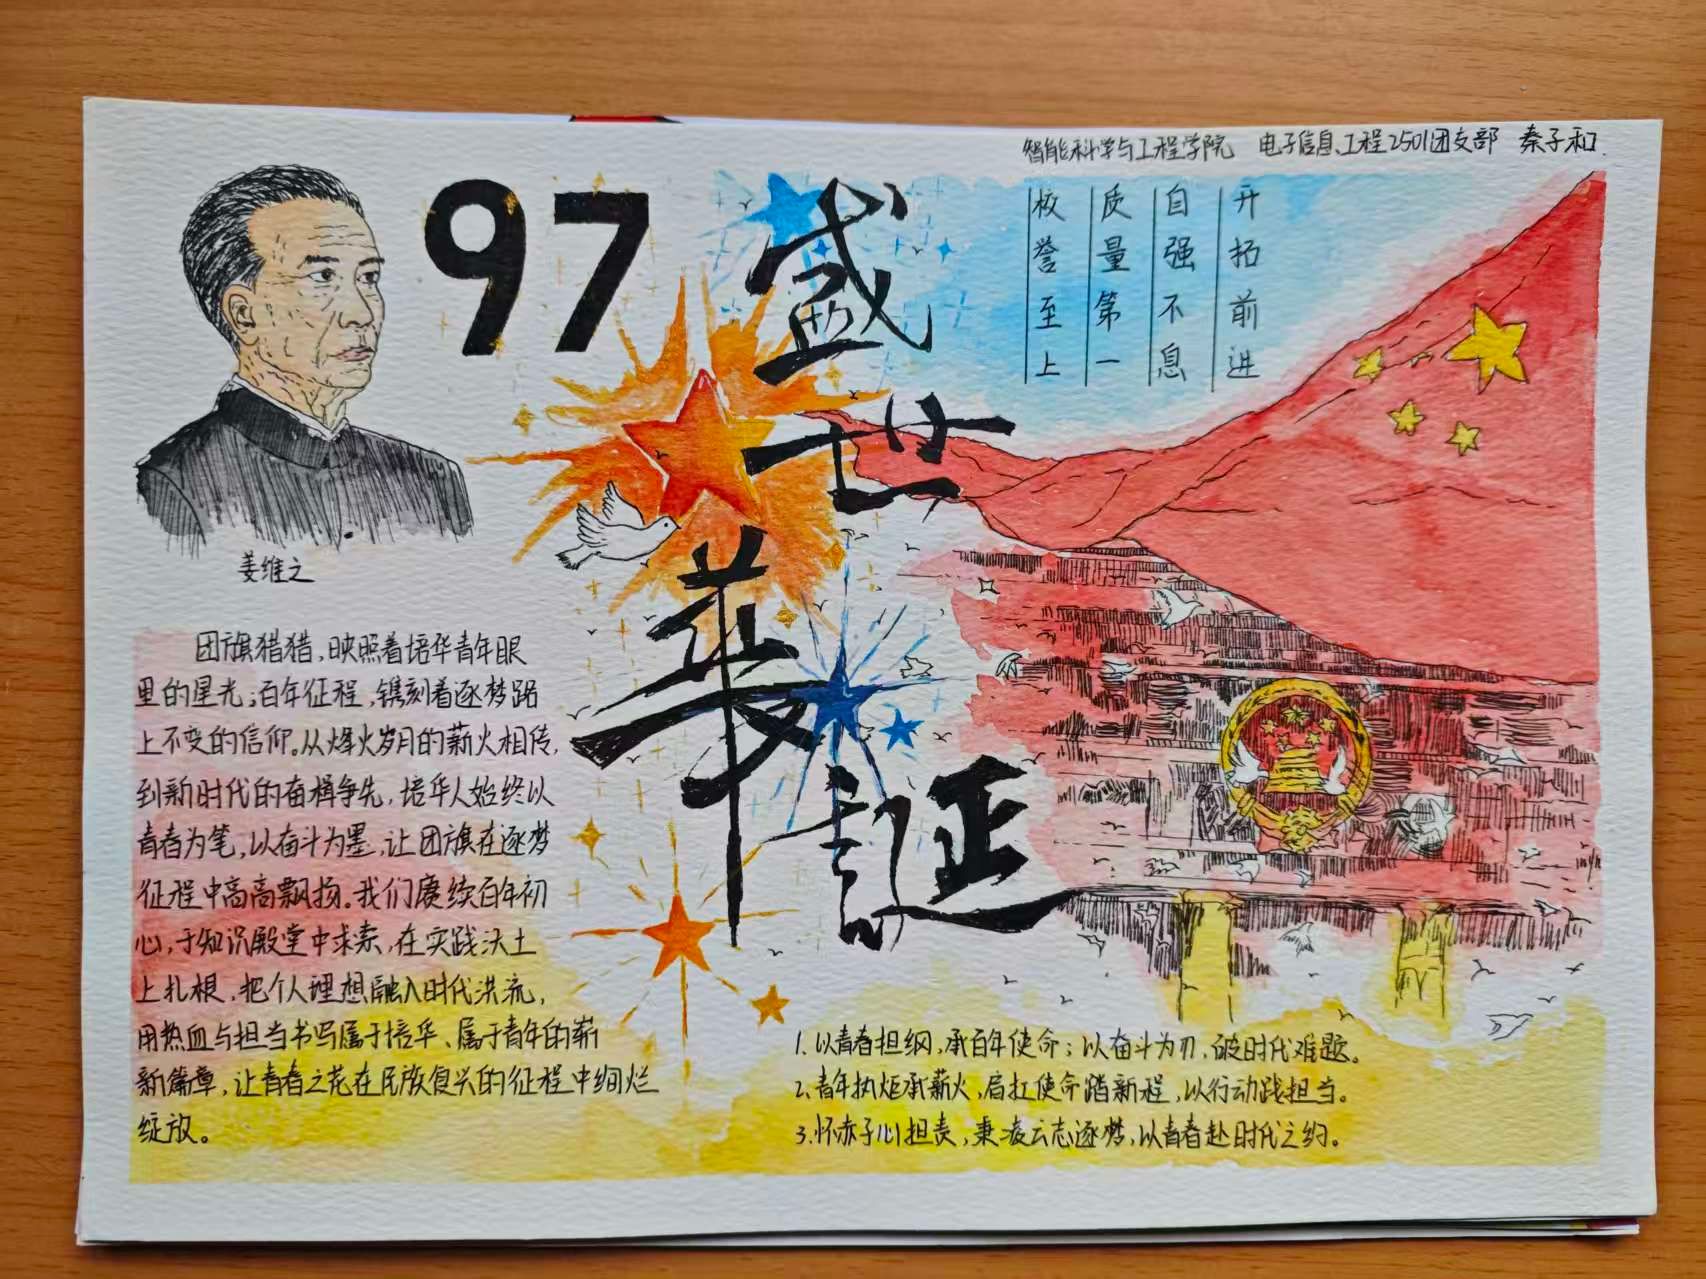 智能科学与工程学院 电子信息工程2501团支部 秦子和
97
盛世華誕
校誉至上
质量第一
自强不息
开拓前进
姜维之
团旗猎猎，映照着培华青年眼
里的星光；百年征程，镌刻着逐梦路
上不变的信仰。从烽火岁月的薪火相传，
到新时代的奋楫争先，培华人始终以
青春为笔，以奋斗为墨，让团旗在逐梦
征程中高高飘扬。我们赓续百年初
心，于知识殿堂中求索，在实践沃土
上扎根，把个人理想融入时代洪流，
用热血与担当书写属于培华、属于青年的崭
新篇章，让青春之花在民族复兴的征程中绚烂
绽放。
1.以青春担纲，承百年使命；以奋斗为刃，破时代难题。
2.青年执炬承薪火，肩扛使命踏新程，以行动践担当。
3.怀赤子心担责，秉凌云志逐梦，以青春赴时代之约。